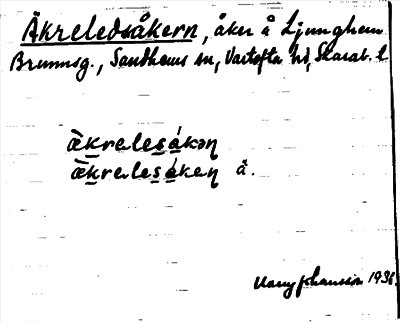 Äkreledsåkern, åker å Ljunghem
Brunnsg., Sandhems sn, Vartofta hd, Skarab. l
ὰ̈krelesǻkən
ὰ̈krelesǻken å.
Harry Johansson 1936.